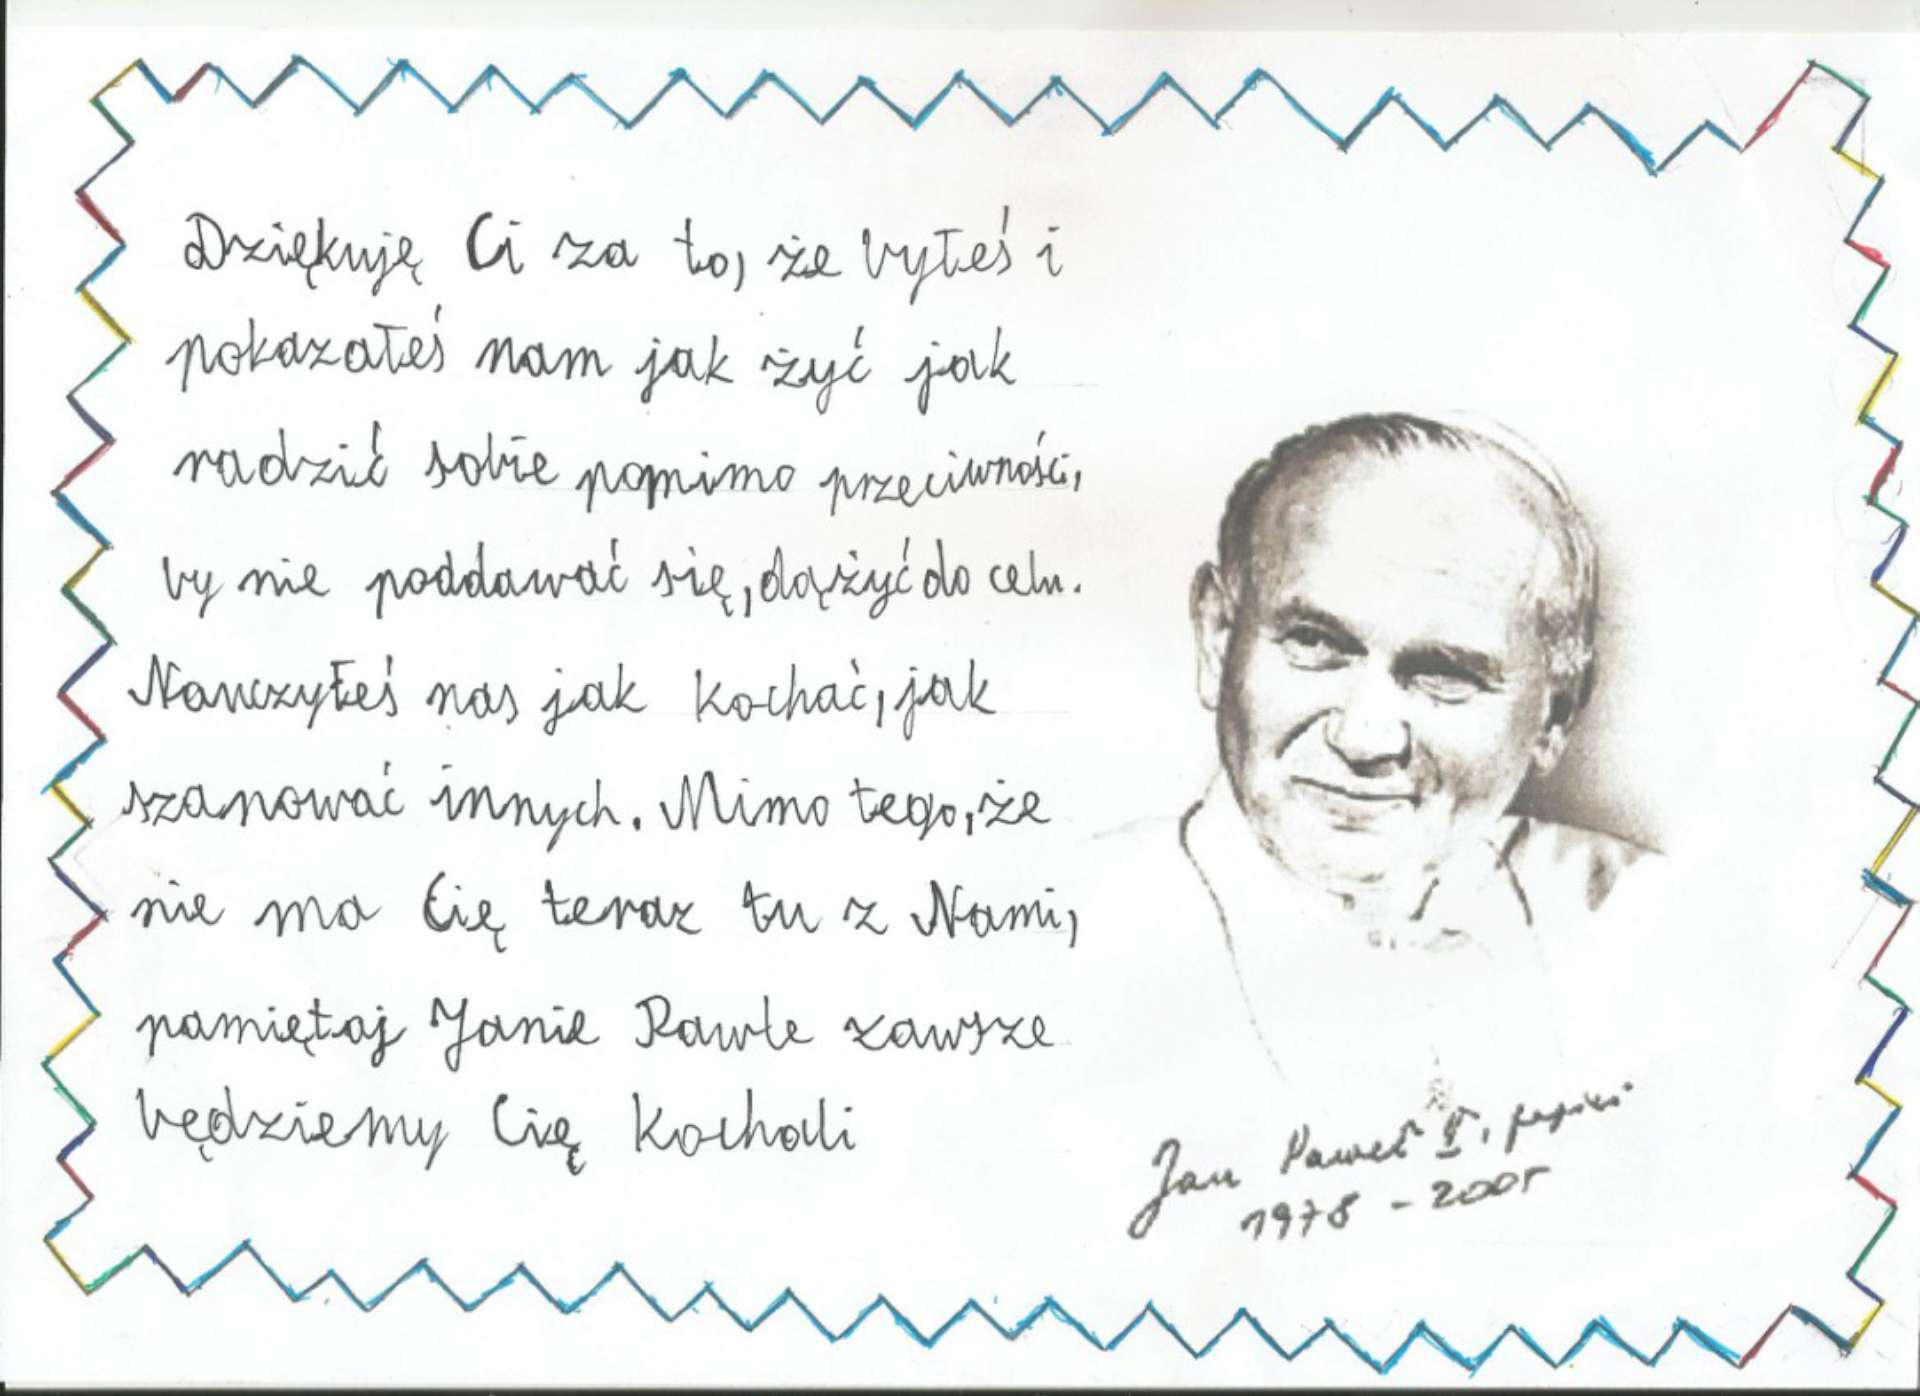 Dziękuję Ci za to, że byłeś i
pokazałeś nam jak żyć jak
radzić sobie pomimo przeciwności,
by nie poddawać się, dążyć do celu.
Nauczyłeś nas jak kochać, jak
szanować innych. Mimo tego, że
nie ma Cię teraz tu z Nami,
pamiętaj Janie Pawle zawsze
będziemy Cię kochali
Jan Paweł II, papież
1978 - 2005